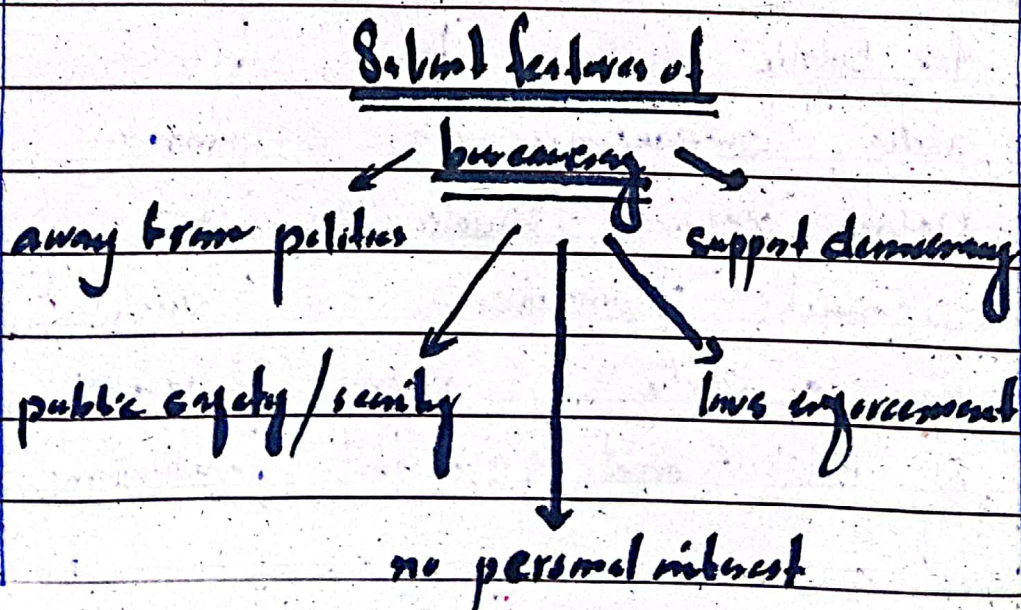 Salient features of
bureaucracy
away from politics
support democracy
public safety / security
laws enforcement
no personal interest